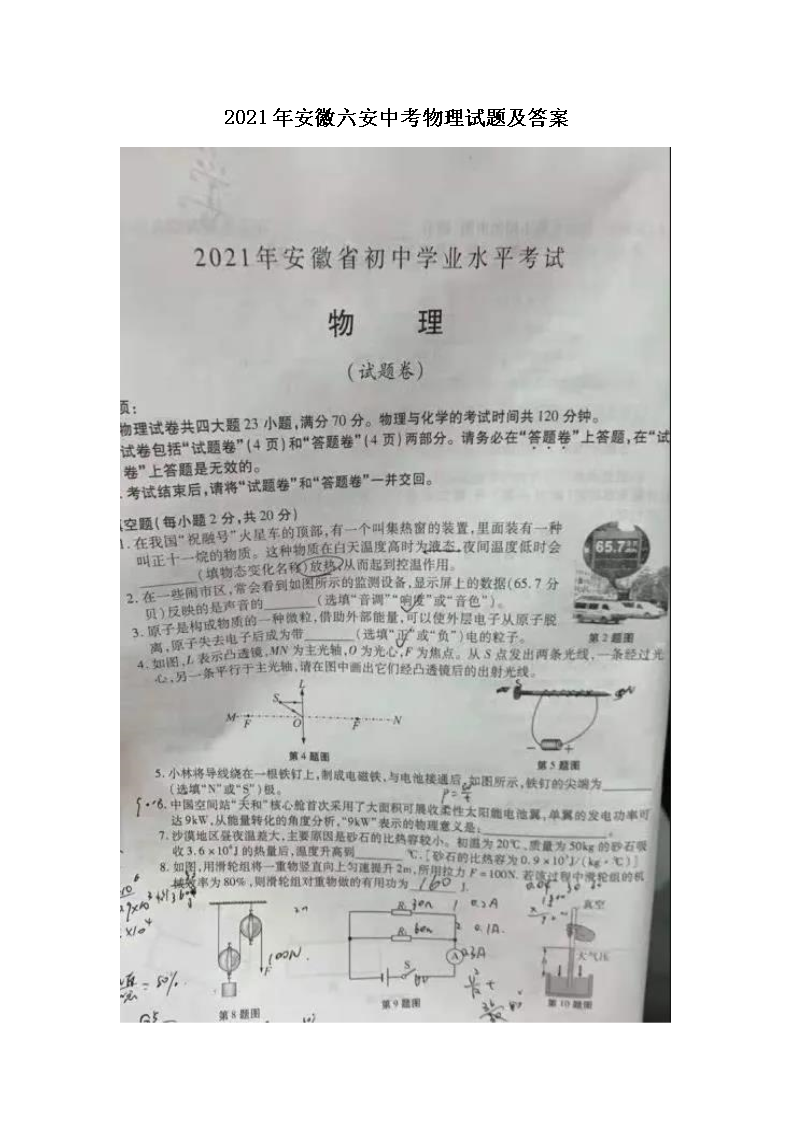 2021年安徽六安中考物理试题及答案
2021年安徽省初中学业水平考试
物 理
(试题卷)
项:
物理试卷共四大题23小题,满分70分。物理与化学的考试时间共120分钟。
试卷包括“试题卷”(4页)和“答题卷”(4页)两部分。请务必在“答题卷”上答题,在“试
卷”上答题是无效的。
.考试结束后,请将“试题卷”和“答题卷”一并交回。
空题(每小题2分,共20分)
1.在我国“祝融号”火星车的顶部,有一个叫集热窗的装置,里面装有一种
叫正十一烷的物质。这种物质在白天温度高时为液态,夜间温度低时会
(填物态变化名称)放热,从而起到控温作用。
65.7
2.在一些闹市区,常会看到如图所示的监测设备,显示屏上的数据(65.7分
贝)反映的是声音的______(选填“音调”“响度”或“音色”)。
3.原子是构成物质的一种微粒,借助外部能量,可以使外层电子从原子脱
离,原子失去电子后成为带______(选填“正”或“负”)电的粒子。
第2题图
4.如图,L表示凸透镜,MN为主光轴,O为光心,F为焦点。从S点发出两条光线,一条经过光
心,另一条平行于主光轴,请在图中画出它们经凸透镜后的出射光线。
L
S
M F O F N
第4题图
S N
- +
第5题图
5.小林将导线绕在一根铁钉上,制成电磁铁,与电池接通后,如图所示,铁钉的尖端为______
(选填“N”或“S”)极。
6.中国空间站“天和”核心舱首次采用了大面积可展收柔性太阳能电池翼,单翼的发电功率可
达9kW,从能量转化的角度分析,“9kW”表示的物理意义是:______。
7.沙漠地区昼夜温差大,主要原因是砂石的比热容较小。初温为20℃、质量为50kg的砂石吸
收3.6×10⁵J的热量后,温度升高到______℃.[砂石的比热容为0.9×10³J/(kg·℃)]
8.如图,用滑轮组将一重物竖直向上匀速提升2m,所用拉力F=100N.若该过程中滑轮组的机
械效率为80%,则滑轮组对重物做的有用功为 160 J.
2m
100N
F
第8题图
R₁ 30Ω 1 0.2A
R₂ 60Ω 2 0.1A
A 0.3A
S
第9题图
真空
大气压
h
第10题图